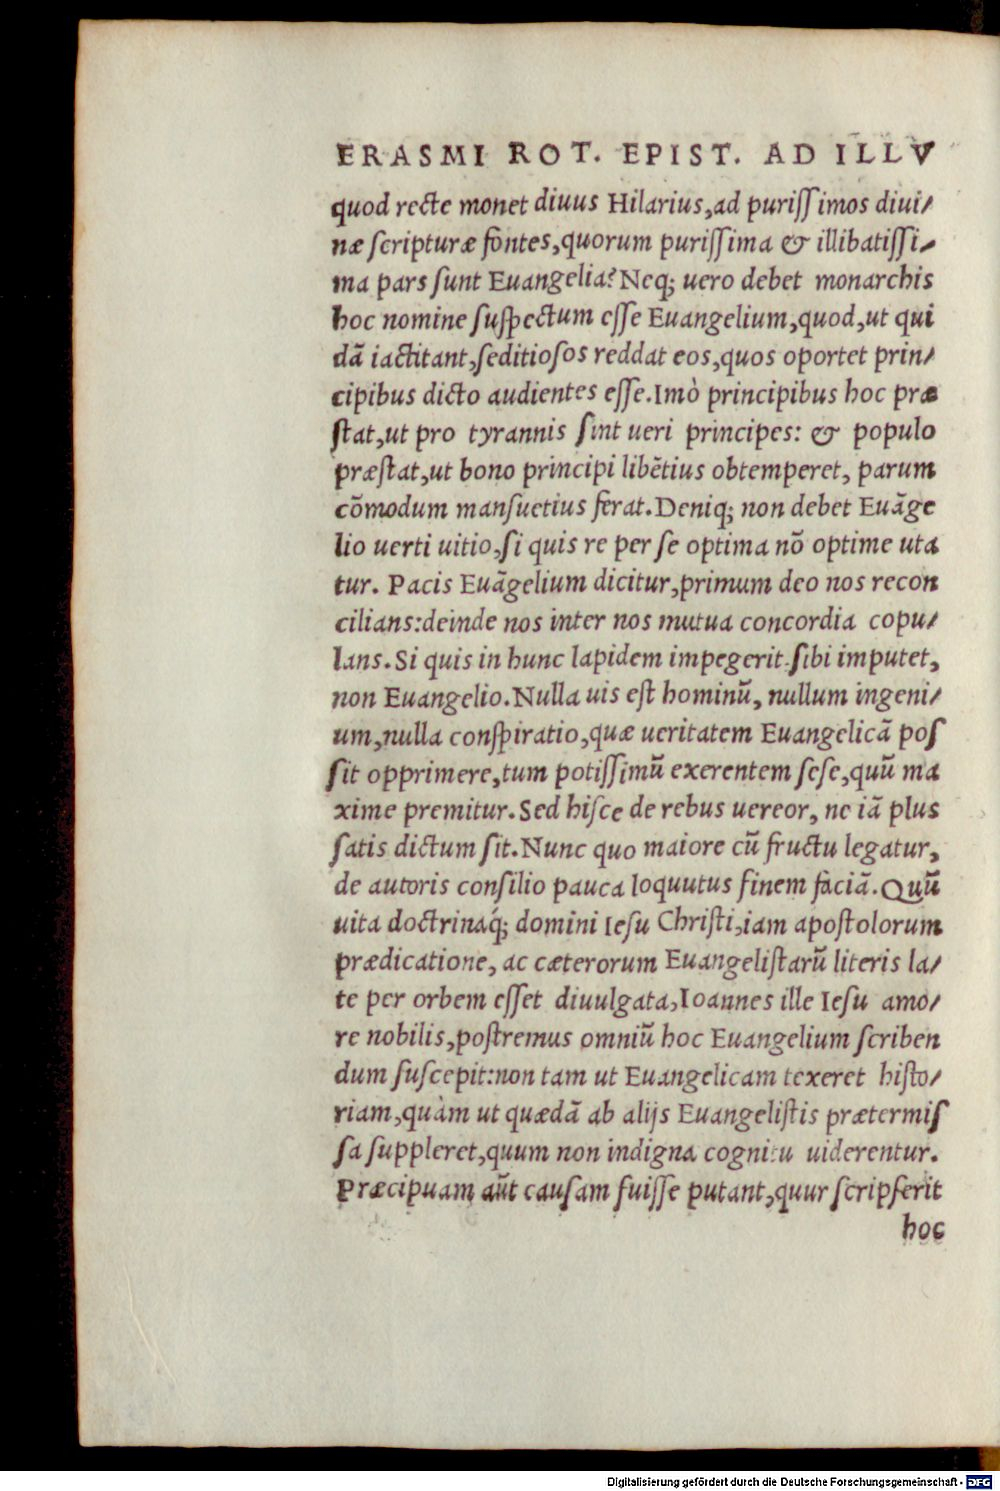 ERASMI ROT. EPIST. AD ILLV
quod recte monet diuus Hilarius,ad puriſſimos diui/
næ ſcripturæ fontes,quorum puriſſima & illibatiſſi/
ma pars ſunt Euangelia? Neq; uero debet monarchis
hoc nomine ſuſpectum eſſe Euangelium,quod,ut qui
dā iactitant,ſeditioſos reddat eos,quos oportet prin/
cipibus dicto audientes eſſe.Imò principibus hoc præ
ſtat,ut pro tyrannis ſint ueri principes: & populo
præſtat,ut bono principi libētius obtemperet, parum
cōmodum manſuetius ferat.Deniq; non debet Euāge
lio uerti uitio,ſi quis re per ſe optima nō optime uta
tur. Pacis Euāgelium dicitur,primum deo nos recon
cilians:deinde nos inter nos mutua concordia copu/
lans.Si quis in hunc lapidem impegerit.ſibi imputet,
non Euangelio.Nulla uis eſt hominū, nullum ingeni/
um,nulla conſpiratio,quæ ueritatem Euangelicā poſ
ſit opprimere,tum potiſſimū exerentem ſeſe,quū ma
xime premitur.Sed hiſce de rebus uereor, ne iā plus
ſatis dictum ſit.Nunc quo maiore cū fructu legatur,
de autoris conſilio pauca loquutus finem faciā.Quū
uita doctrinaq́; domini Ieſu Chriſti,iam apoſtolorum
prædicatione, ac cæterorum Euangeliſtarū literis la/
te per orbem eſſet diuulgata,Ioannes ille Ieſu amo/
re nobilis,poſtremus omniū hoc Euangelium ſcriben
dum ſuſcepit:non tam ut Euangelicam texeret hiſto/
riam,quàm ut quædā ab alijs Euangeliſtis prætermiſ
ſa ſuppleret,quum non indigna cognitu uiderentur.
Præcipuam aūt cauſam fuiſſe putant,quur ſcripſerit
hoc
Digitalisierung gefördert durch die Deutsche Forschungsgemeinschaft - DFG